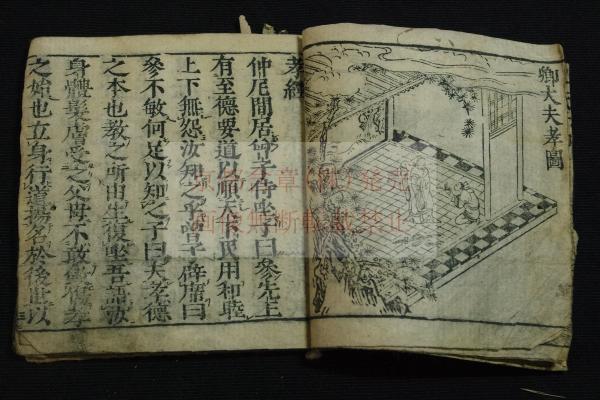 卿大夫孝圖
孝經
仲尼間居曾子侍坐子曰參先王
有至德要道以順天下民用和睦
上下無怨汝知之乎曾子辟席曰
參不敏何足以知之子曰夫孝德
之本也教之所由生復坐吾語汝
身體髮膚受之父母不敢毀傷孝
之始也立身行道揚名於後世以
(株)発売
画像無断転載禁止